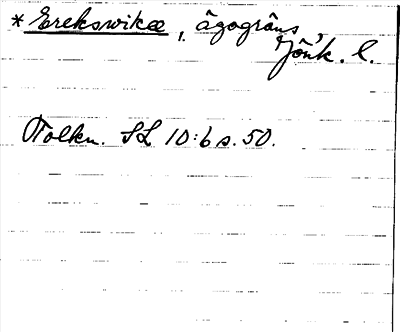 * Erekswikæ, ägogräns,
Jönk. l.
Tolkn. SL 10:6 s. 50.